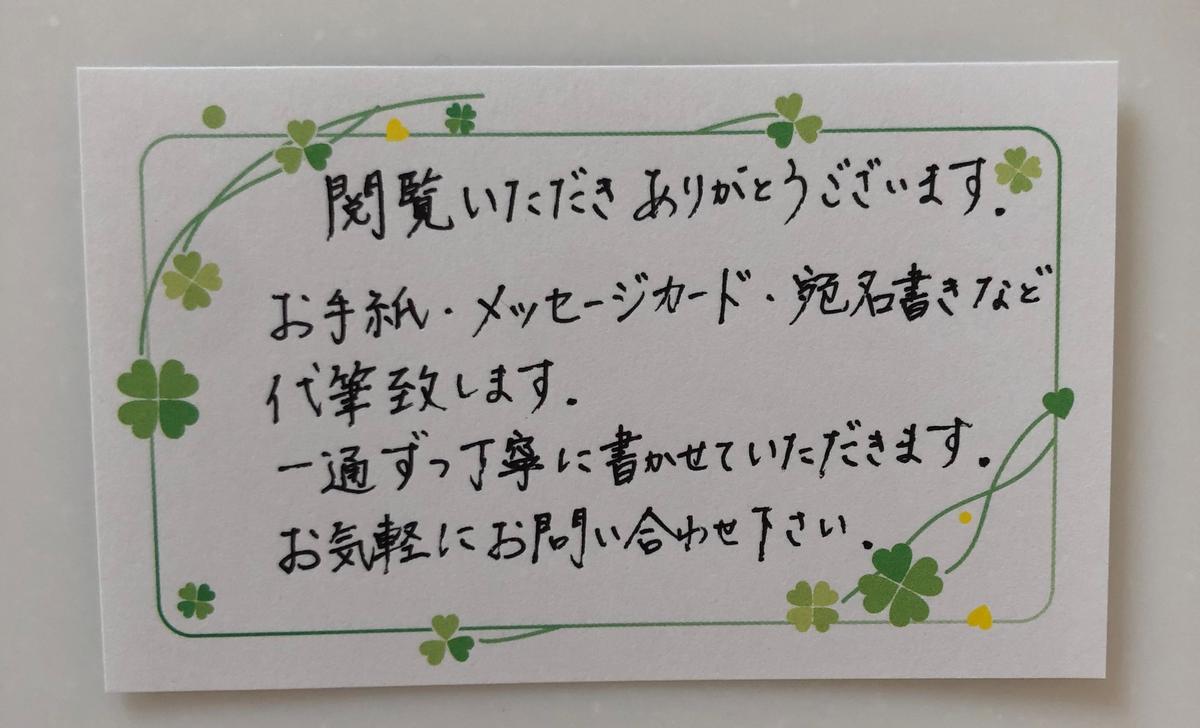 閲覧いただきありがとうございます.
お手紙・メッセージカード・宛名書きなど
代筆致します.
一通ずつ丁寧に書かせていただきます.
お気軽にお問い合わせ下さい.